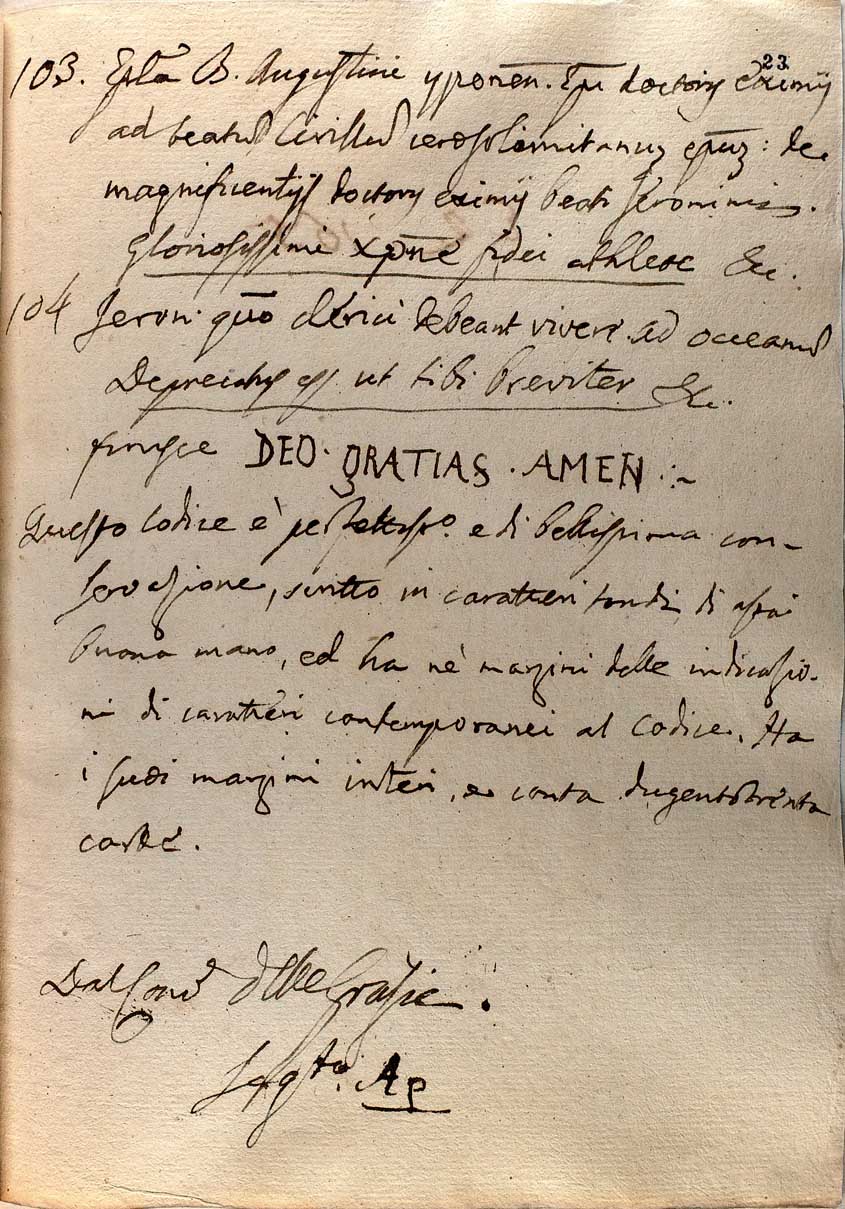 23
103. Epl̃a B. Augustini yponeñ. Ep̃i doctoris eximij
ad beatũ Cirillũ ierosolimitanuʒ ep̃uʒ: de
magnificentijs doctoris eximij beati Jeronimi.
gloriosissimi xp̃ne fidei athlete &c.
104 Jeron. quõ clerici debeant vivere ad occeanũ
Deprecatus es ut tibi breviter &c.
finisce DEO. GRATIAS. AMEN :~
Questo Codice è perfettissº. e di bellissima con-
servazione, scritto in caratteri tondi di assai
buona mano, ed ha ne' margini delle indicazio-
ni di caratteri contemporanei al Codice. Ha
i suoi margini interi, e conta dugentotrenta
carte.
Dal Convº delle Grazie.
Segtº. Ap